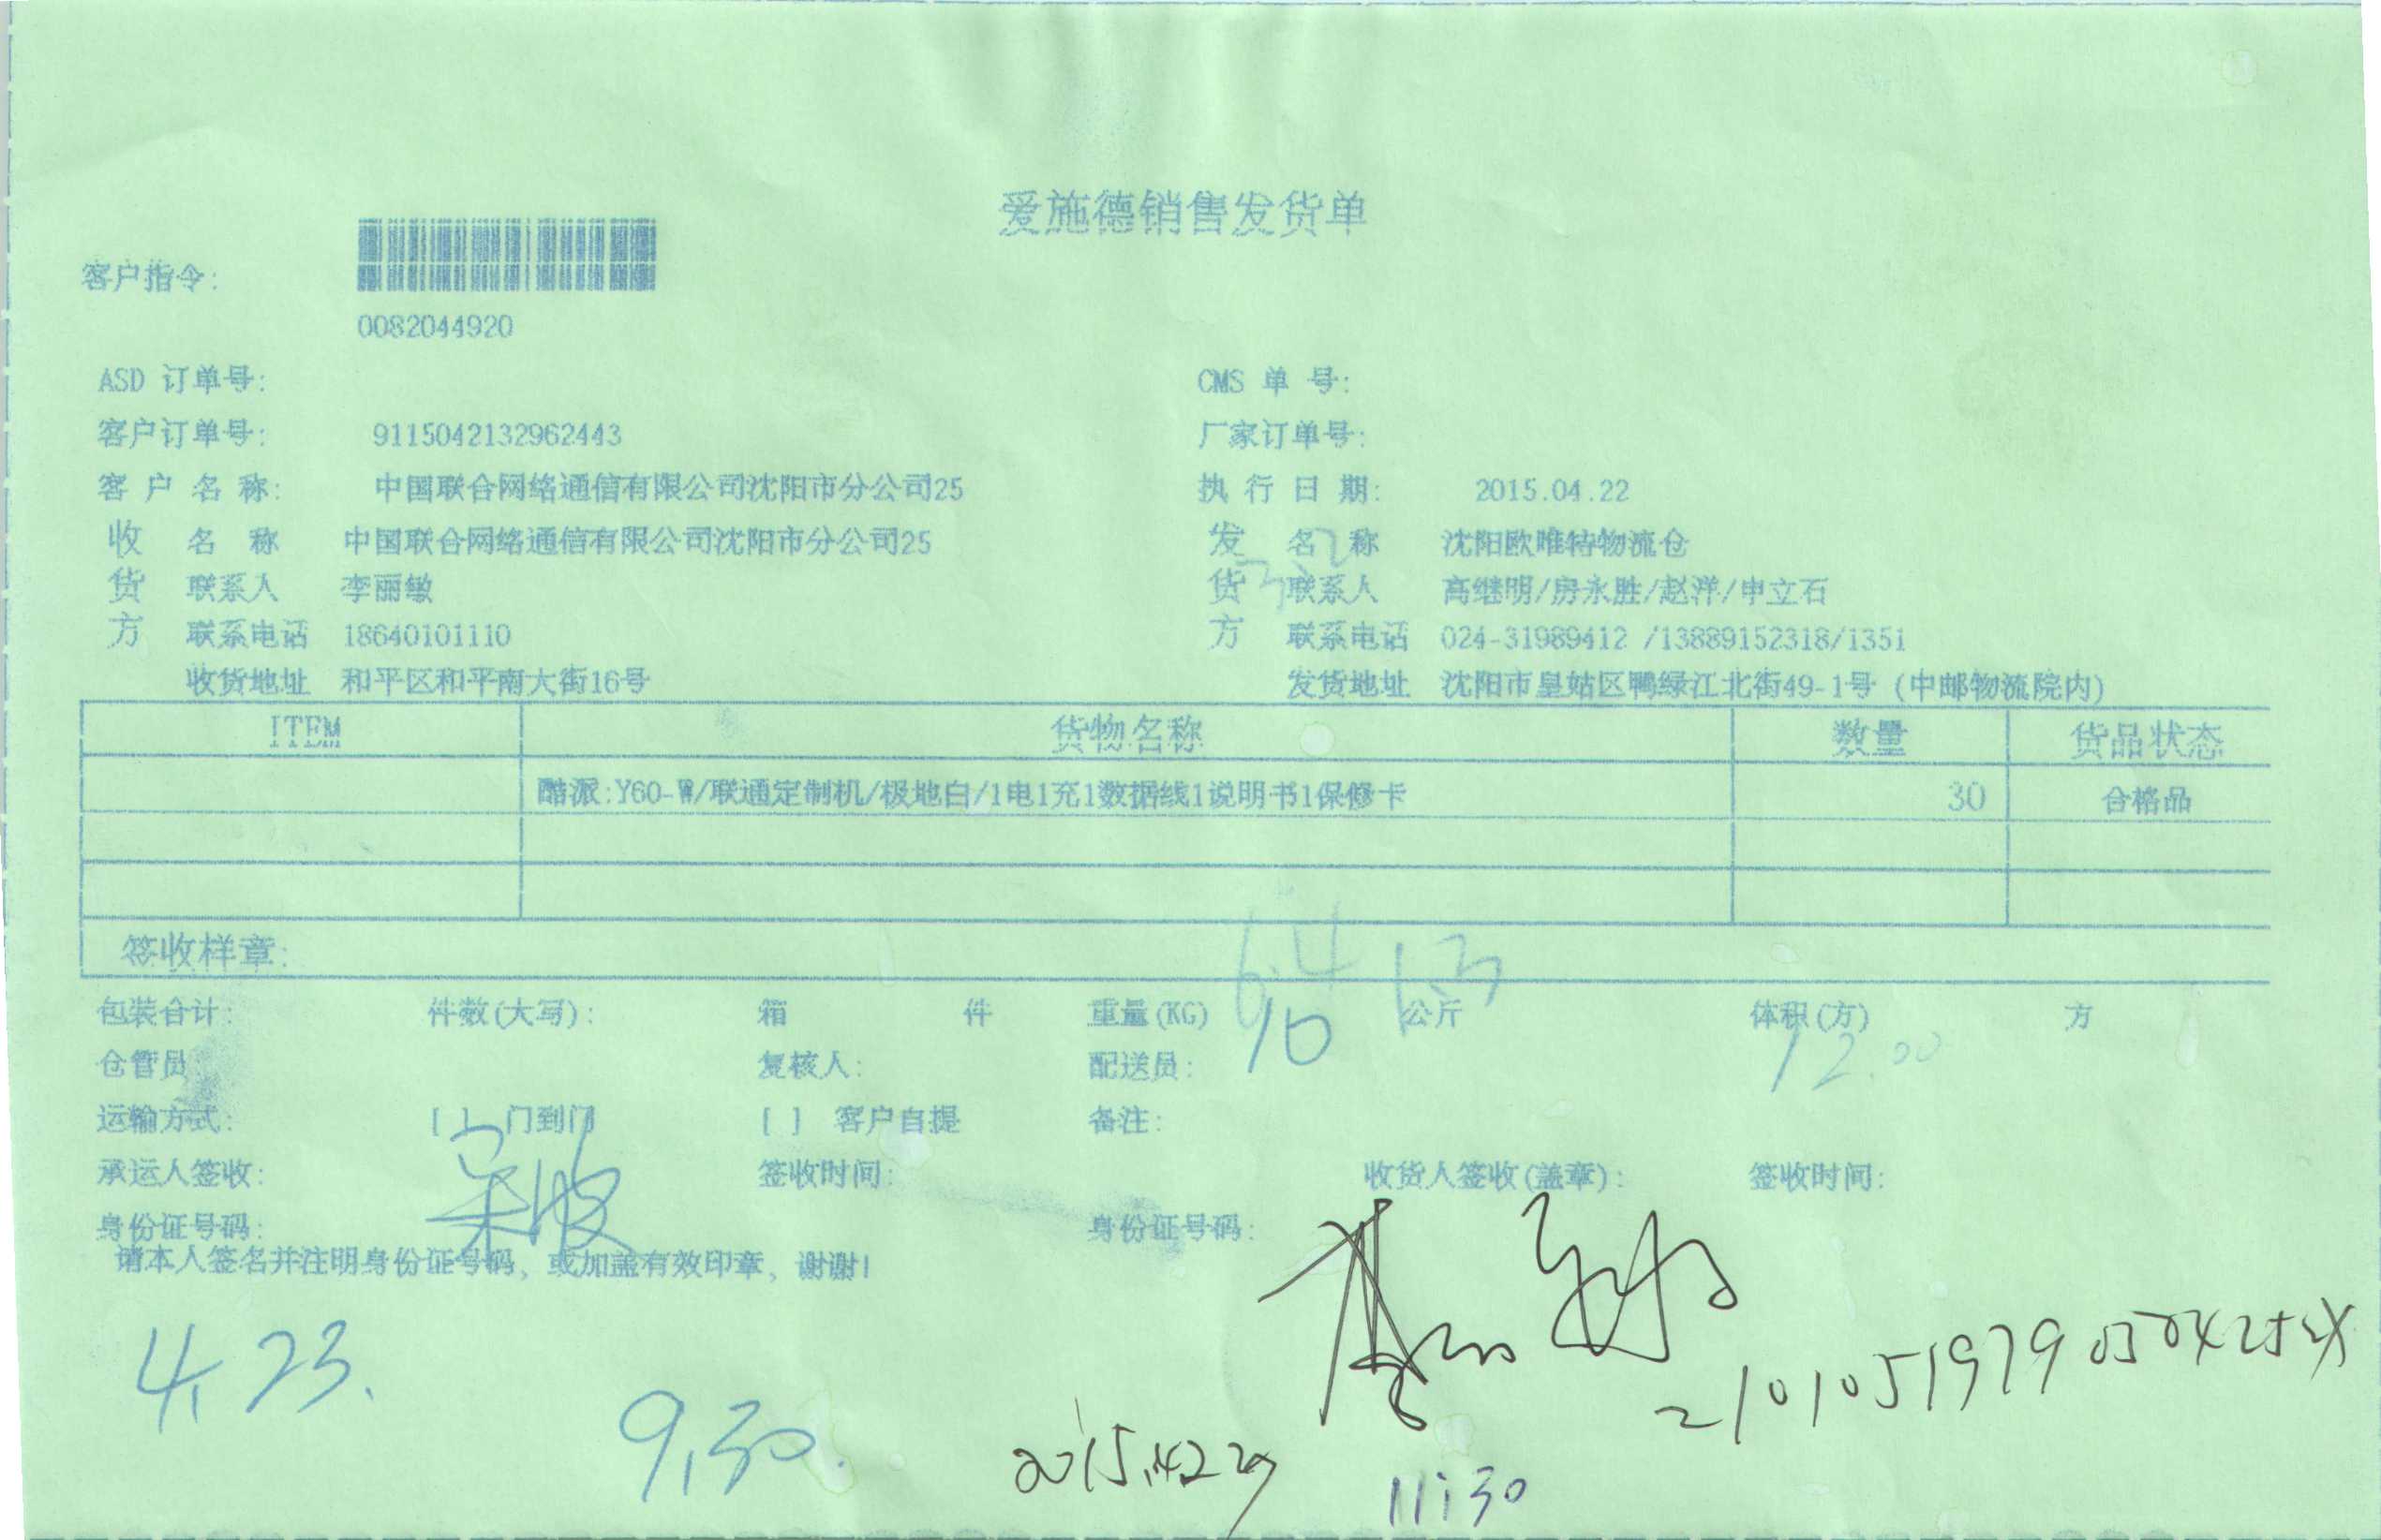 爱施德销售发货单
客户指令:
0082044920
ASD 订单号: CMS 单 号:
客户订单号: 9115042132962443 厂家订单号:
客 户 名 称: 中国联合网络通信有限公司沈阳市分公司25 执 行 日 期: 2015.04.22
收 名 称 中国联合网络通信有限公司沈阳市分公司25 发 名 称 沈阳欧唯特物流仓
货 联系人 李丽敏 货 联系人 高继明/房永胜/赵洋/申立石
方 联系电话 18640101110 方 联系电话 024-31989412 /13889152318/1351
收货地址 和平区和平南大街16号 发货地址 沈阳市皇姑区鸭绿江北街49-1号 (中邮物流院内)
ITEM 货物名称 数量 货品状态
酷派:Y60-W/联通定制机/极地白/1电1充1数据线1说明书1保修卡 30 合格品
签收样章:
包装合计: 件数(大写): 箱 件 重量(KG) 公斤 体积(方) 方
仓管员: 复核人: 配送员: 12.00
运输方式: [ ] 门到门 [ ] 客户自提 备注:
承运人签收: 签收时间: 收货人签收(盖章): 签收时间:
身份证号码: 身份证号码:
请本人签名并注明身份证号码, 或加盖有效印章, 谢谢!
4.23.
9.30.
11:30